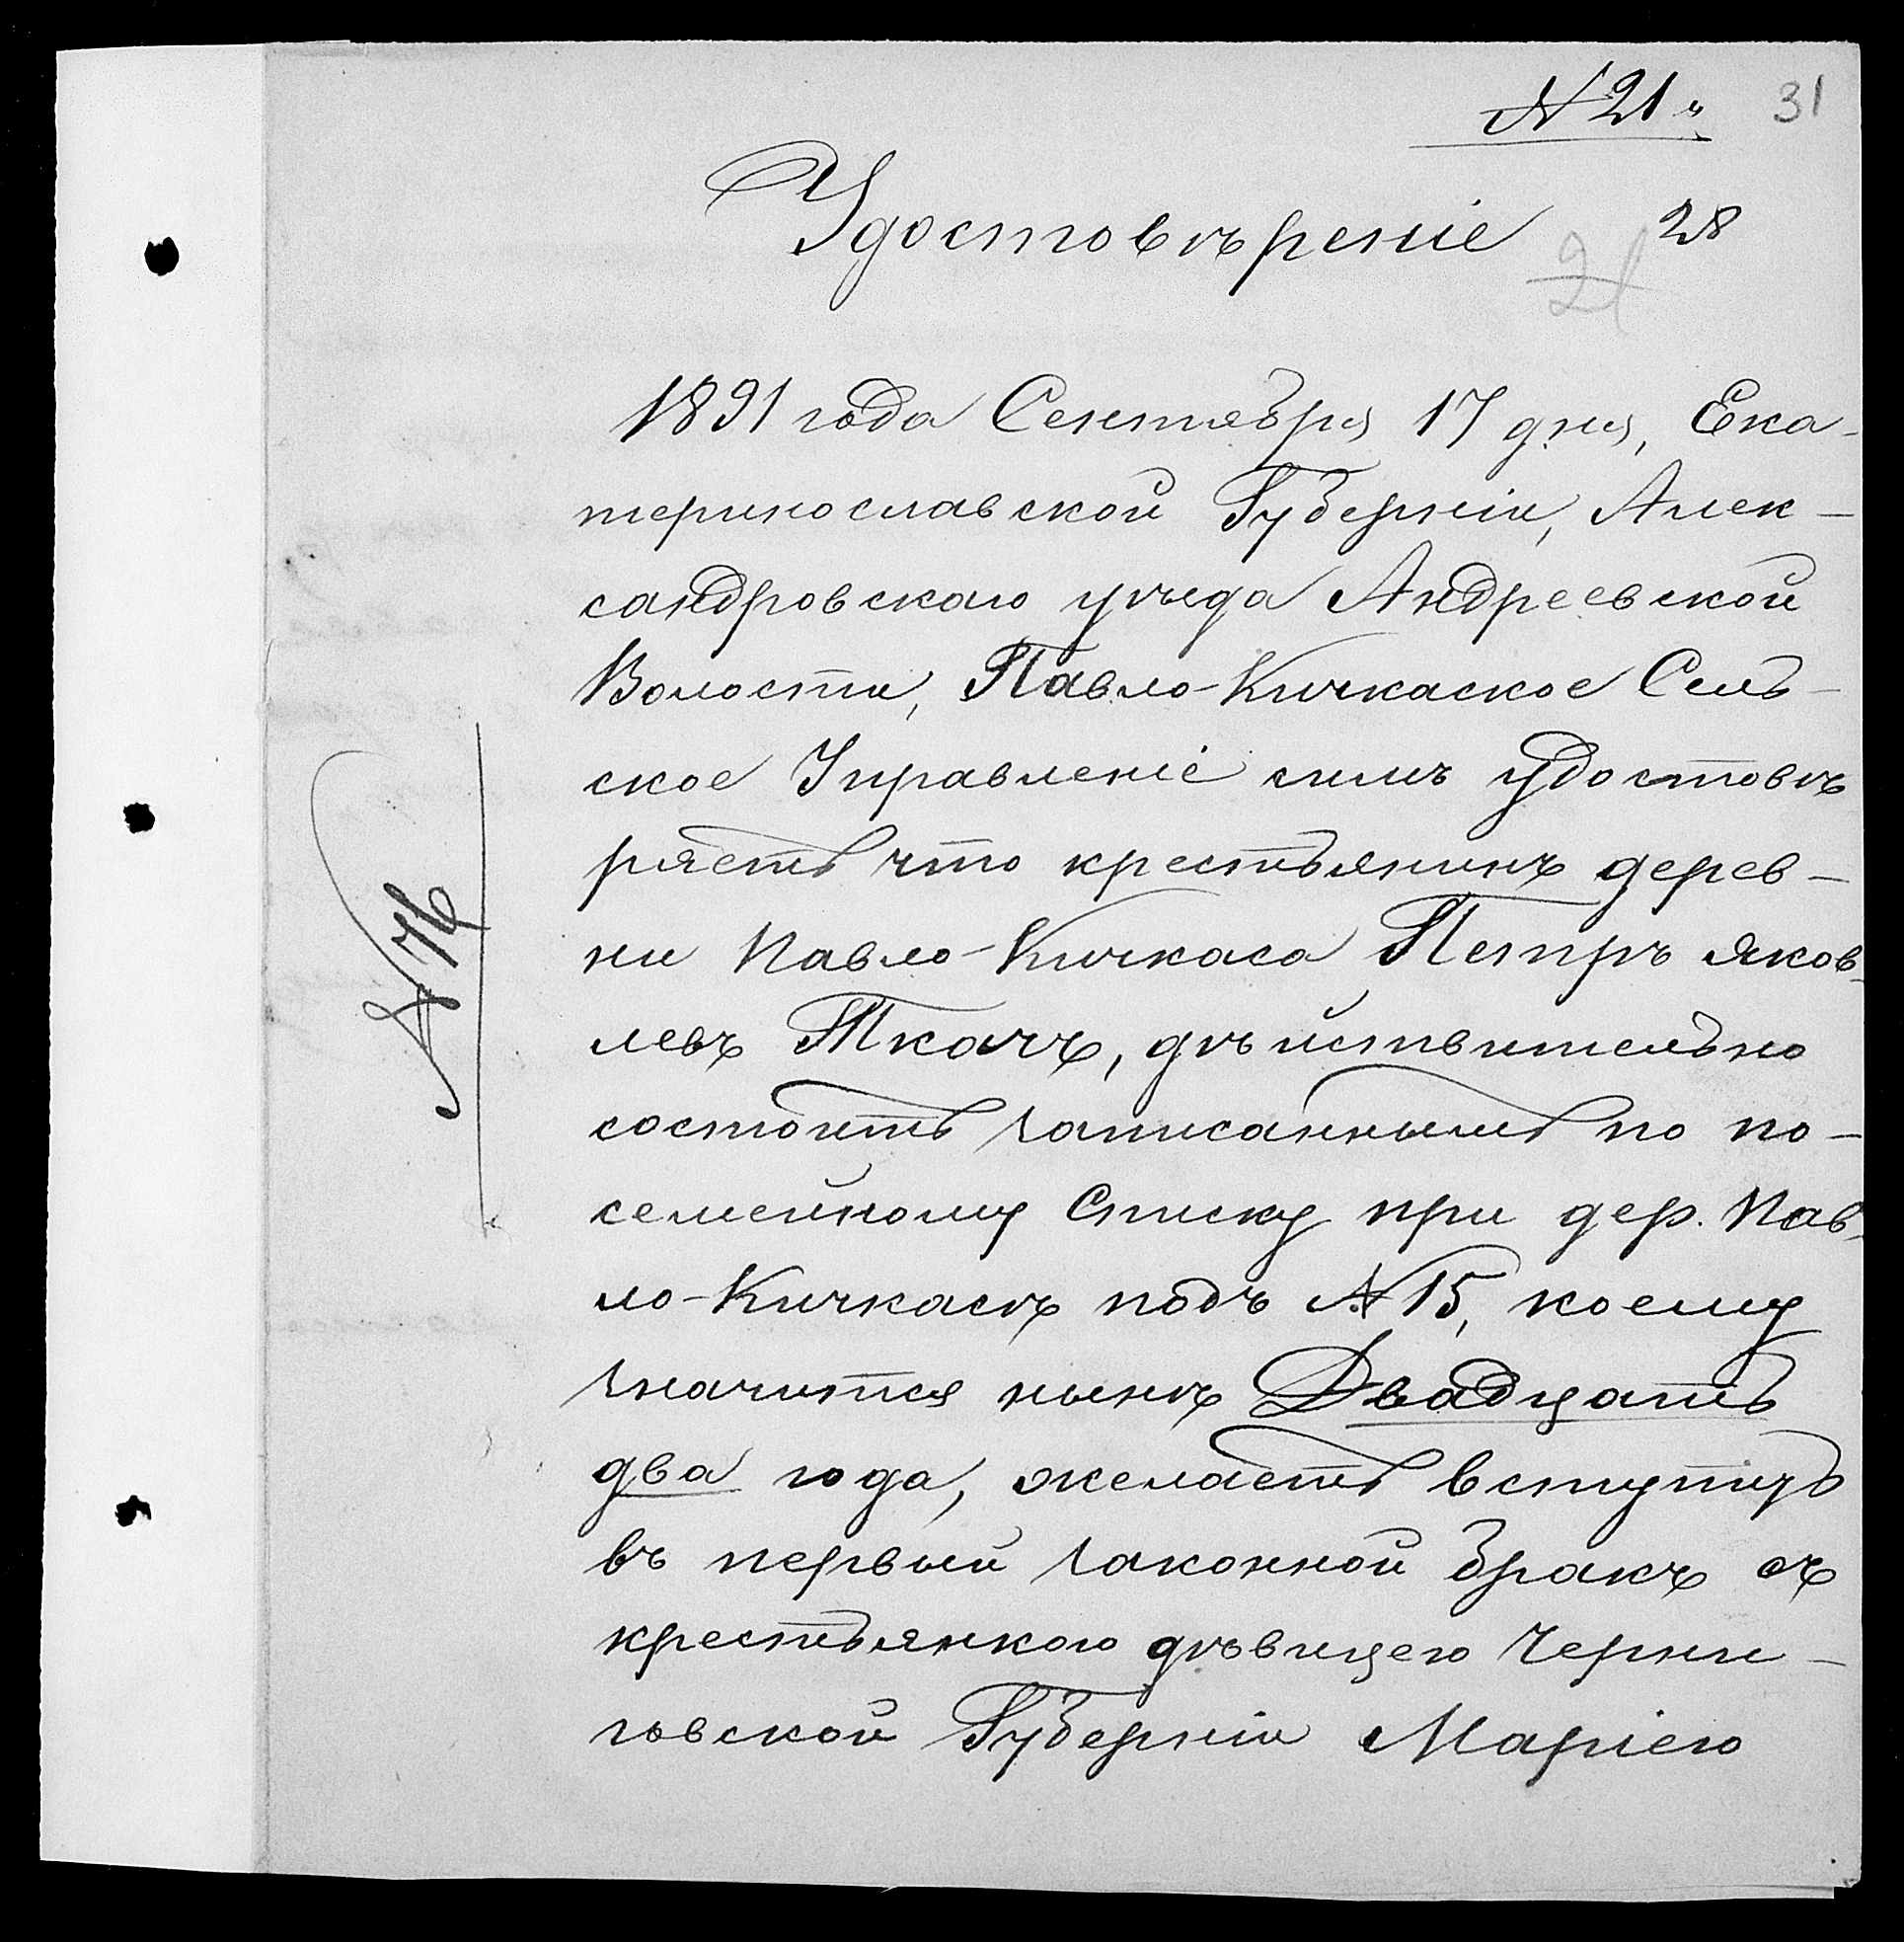 № 21 " 31
Удостовѣреніе 28
21
1891 года Сентября 17 дня, Ека-
теринославской Губерніи, Алек-
сандровскаго уѣзда Андреевской
Волости, Павло-Кичкаское Сель-
ское Управленіе симъ удостовѣ
ряетъ что крестьянинъ дерев-
ни Павло-Кичкаса Петръ Яков-
левъ Ткачъ, дѣйствительно
состоитъ записаннымъ по по-
семейному Списку при дер. Пав-
ло-Кичкасѣ подъ № 15, коему
значится нынѣ Двадцать
два года, желаетъ вступить
въ первый законной бракъ съ
крестьянкою дѣвицею Черни-
говской Губерніи Маріею